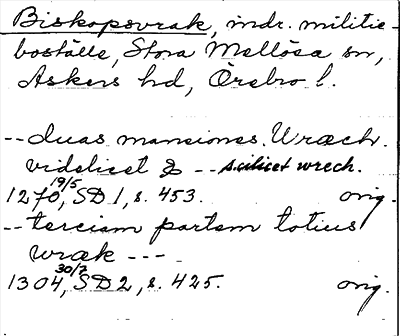 Biskopsvrak, indr. militie-
boställe, Stora Mellösa sn,
Askers hd, Örebro l.
-- duas mansiones. Wræch.
videlicet & -- scilicet wrech.
1270 19/5, SD 1, s. 453. orig.
-- terciam partem totius
wræk ---
1304 30/7, SD 2, s. 425. orig.